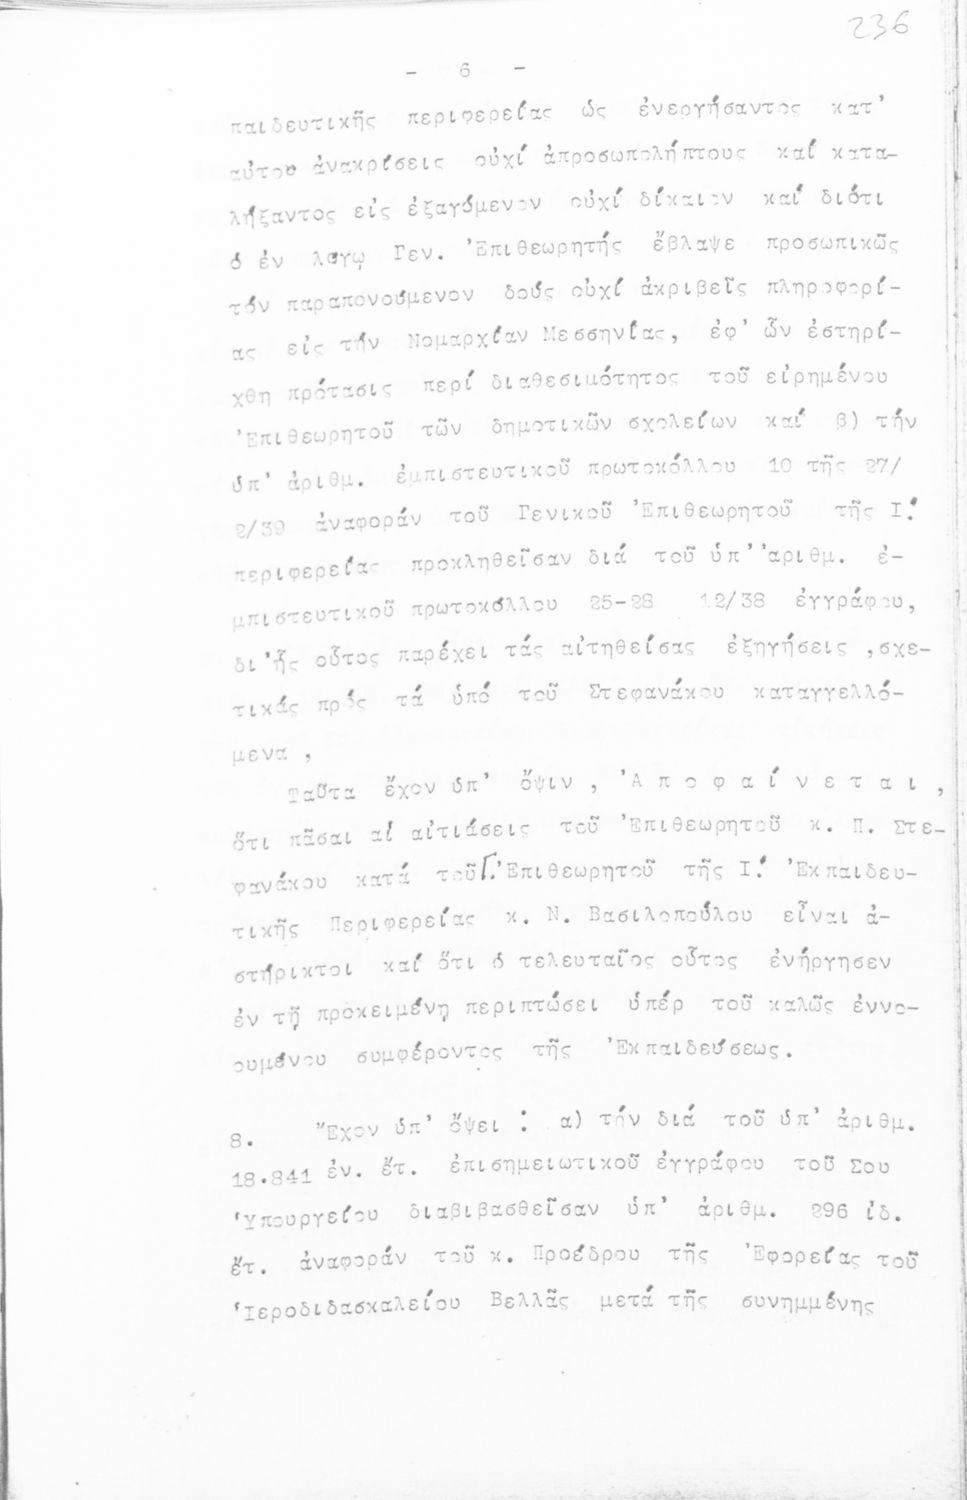 236
- 6 -
παιδευτικῆς περιφερείας ὡς ἐνεργήσαντος κατ'
αὐτου ἀνακρίσεις οὐχί ἀπροσωπολήπτους καί κατα-
λήξαντος εἰς ἐξαγόμενον οὐχί δίκαιον καί διότι
ὁ ἐν λόγῳ Γεν. Ἐπιθεωρητής ἔβλαψε προσωπικῶς
τόν παραπονούμενον δούς οὐχί ἀκριβεῖς πληροφορί-
ας εἰς τήν Νομαρχίαν Μεσσηνίας, ἐφ' ὧν ἐστηρί-
χθη πρότασις περί διαθεσιμότητος τοῦ εἰρημένου
Ἐπιθεωρητοῦ τῶν δημοτικῶν σχολείων καί β) τήν
ὑπ' ἀριθμ. ἐμπιστευτικοῦ πρωτοκόλλου 10 τῆς 27/
2/39 ἀναφοράν τοῦ Γενικοῦ Ἐπιθεωρητοῦ τῆς Ι.'
περιφερείας προκληθεῖσαν διά τοῦ ὑπ' ἀριθμ. ἐ-
μπιστευτικοῦ πρωτοκόλλου 25-28 12/38 ἐγγράφου,
δι'ἧς οὗτος παρέχει τάς αἰτηθείσας ἐξηγήσεις ,σχε-
τικάς πρός τά ὑπό τοῦ Στεφανάκου καταγγελλό-
μενα ,
Ταῦτα ἔχον ὑπ' ὄψιν , Ἀ π ο φ α ί ν ε τ α ι ,
ὅτι πᾶσαι αἱ αἰτιάσεις τοῦ Ἐπιθεωρητοῦ κ. Π. Στε-
φανάκου κατά τοῦ Γ. Ἐπιθεωρητοῦ τῆς Ι.' Ἐκπαιδευ-
τικῆς Περιφερείας κ. Ν. Βασιλοπούλου εἶναι ἀ-
στήρικτοι καί ὅτι ὁ τελευταῖος οὗτος ἐνήργησεν
ἐν τῇ προκειμένῃ περιπτώσει ὑπέρ τοῦ καλῶς ἐννο-
ουμένου συμφέροντος τῆς Ἐκπαιδεύσεως.
8. Ἔχον ὑπ' ὄψει : α) τήν διά τοῦ ὑπ' ἀριθμ.
18.841 ἐν. ἔτ. ἐπισημειωτικοῦ ἐγγράφου τοῦ Σου
Ὑπουργείου διαβιβασθεῖσαν ὑπ' ἀριθμ. 296 ἰδ.
ἔτ. ἀναφοράν τοῦ κ. Προέδρου τῆς Ἐφορείας τοῦ
Ἱεροδιδασκαλείου Βελλᾶς μετά τῆς συνημμένης